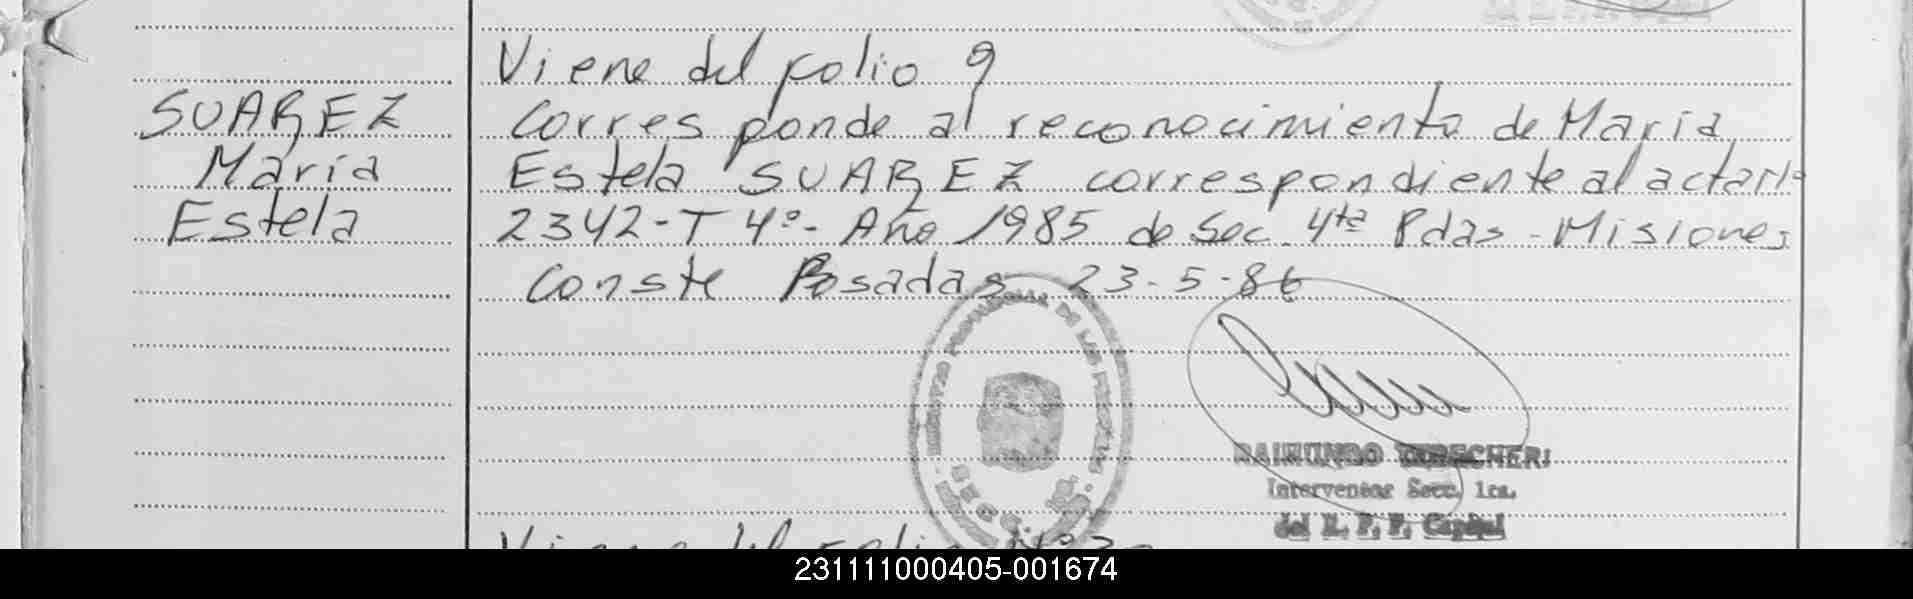 Viene del folio 9
SUAREZ
Maria
Estela
Corresponde al reconocimiento de Maria
Estela SUAREZ correspondiente al acta
2342-T 4º- Año 1985 de Sec. 4ta Pdas - Misiones
Conste Posadas 23-5-86
RAIMUNDO
Interventor Secc. 1ra.
del R. P. P. Capital
Viene del folio Nº
231111000405-001674